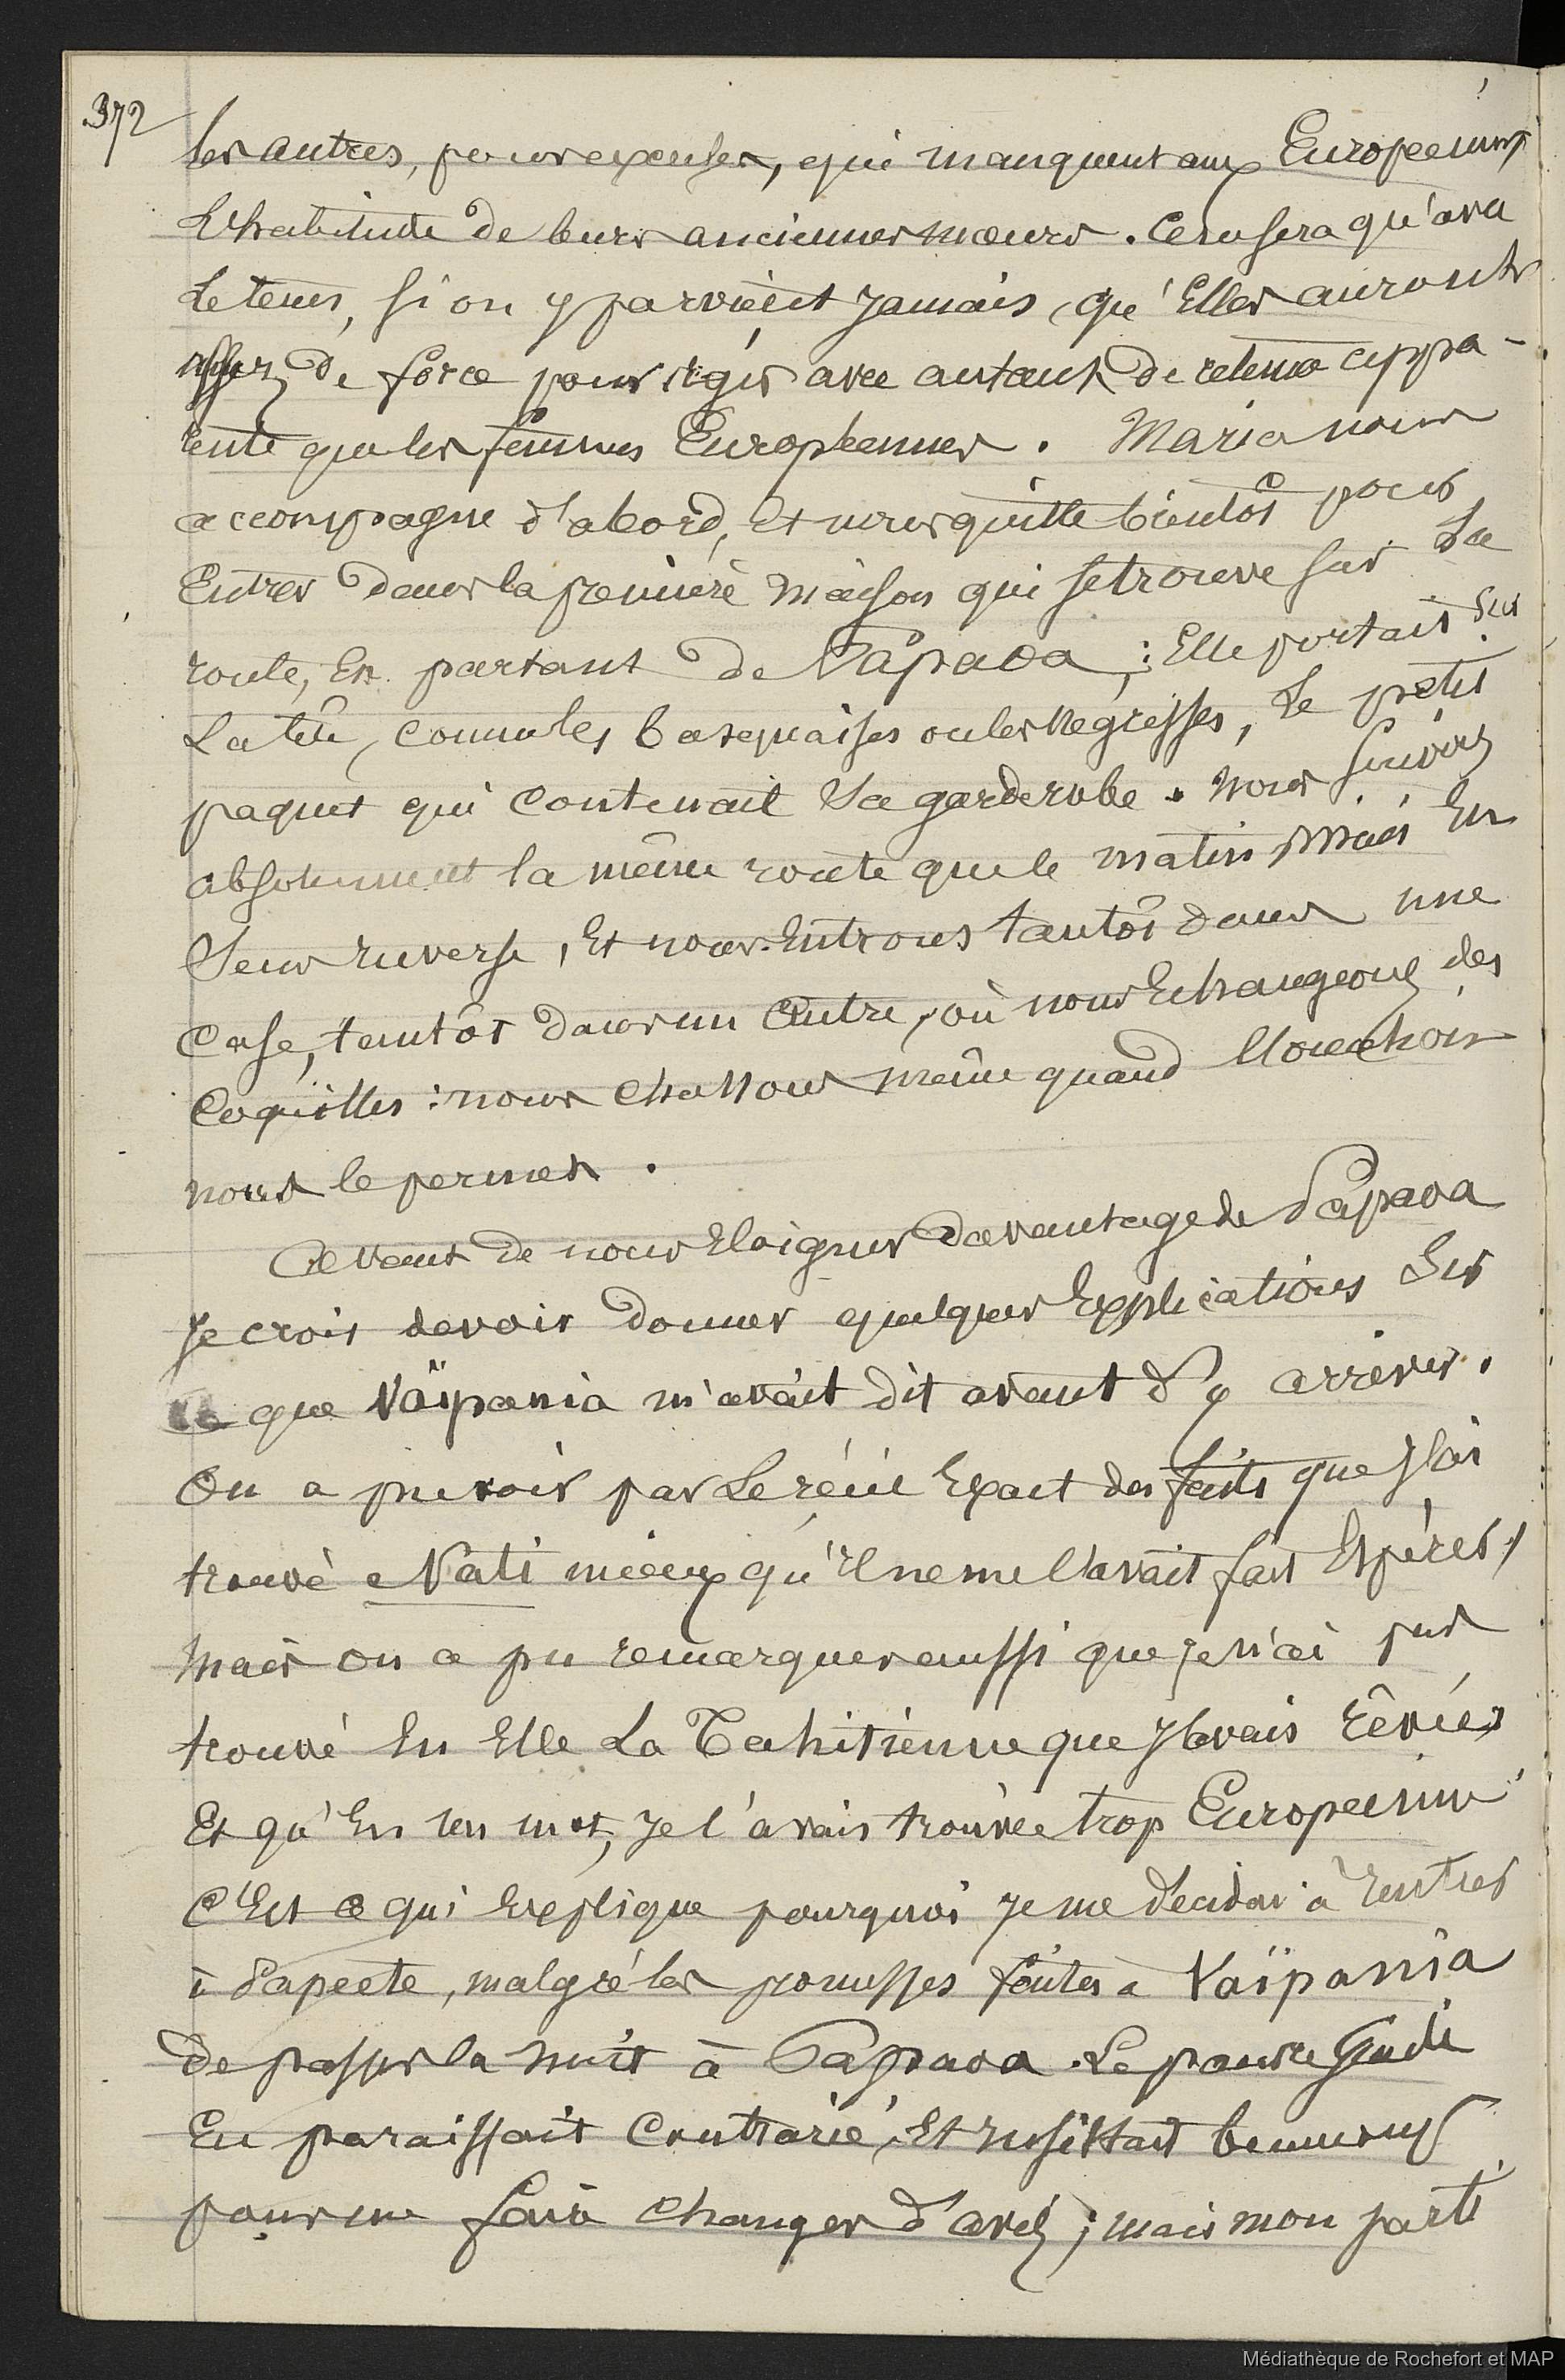 372
les autres, pour excuser, qui manquent aux Européennes
L'habitude de leurs anciennes mœurs. Ce ne sera qu'avec
Le tems, si on y parvient jamais, qu'Elles auront
assez de force pour réagir avec autant de retenue appa-
rente que les femmes Européennes. Maria nous
accompagne d'abord, Et nous quitte bientôt pour
Entrer dans la première maison qui se trouve sur Sa
route, En partant de Papava; Elle portait sur
La tête, comme les basquaises ou les Négresses, Le petit
paquet qui contenait Sa garderobe. Nous suivons
absolument la même route que le matin, Mais En
Sens inverse, Et nous Entrons tantôt dans une
Case, tantôt dans un Autre, où nous Echangeons des
Coquilles: nous chassons même quand l'occasion
nous le permet.
Avant de nous Eloigner davantage de Papava
Je crois devoir donner quelques Explications Sur
ce que Vaïpania m'avait dit avant d'y arriver.
On a pu voir par Le récit Exact des faits que J'ai
trouvé Nati mieux qu'Il ne me l'avait fait Espérer,
Mais on a pu remarquer aussi que Je n'ai pas
trouvé En Elle La Tahitienne que J'avais rêvée,
Et qu'En un mot, Je l'avais trouvée trop Européenne
C'Est ce qui Explique pourquoi Je me décidai à rentrer
à Papeete, malgré les promesses faites à Vaïpania
de passer la nuit à Papava. Le pauvre Guide
En paraissait Contrarié, Et insistait beaucoup
pour me faire changer d'avis; mais mon parti
Médiathèque de Rochefort et MAP